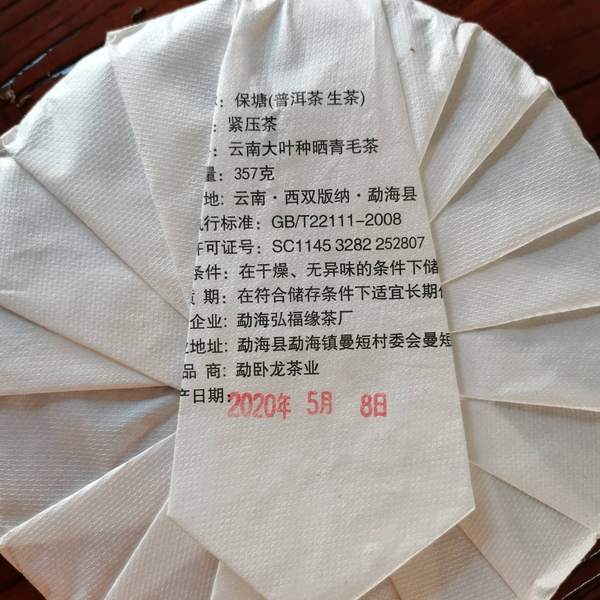 ：保塘(普洱茶 生茶)
：紧压茶
：云南大叶种晒青毛茶
量：357克
地：云南·西双版纳·勐海县
执行标准：GB/T22111-2008
许可证号：SC1145 3282 252807
条件：在干燥、无异味的条件下储
质 期：在符合储存条件下适宜长期
企业：勐海弘福缘茶厂
业地址：勐海县勐海镇曼短村委会曼短
品 商：勐卧龙茶业
产日期：2020年 5月 8日